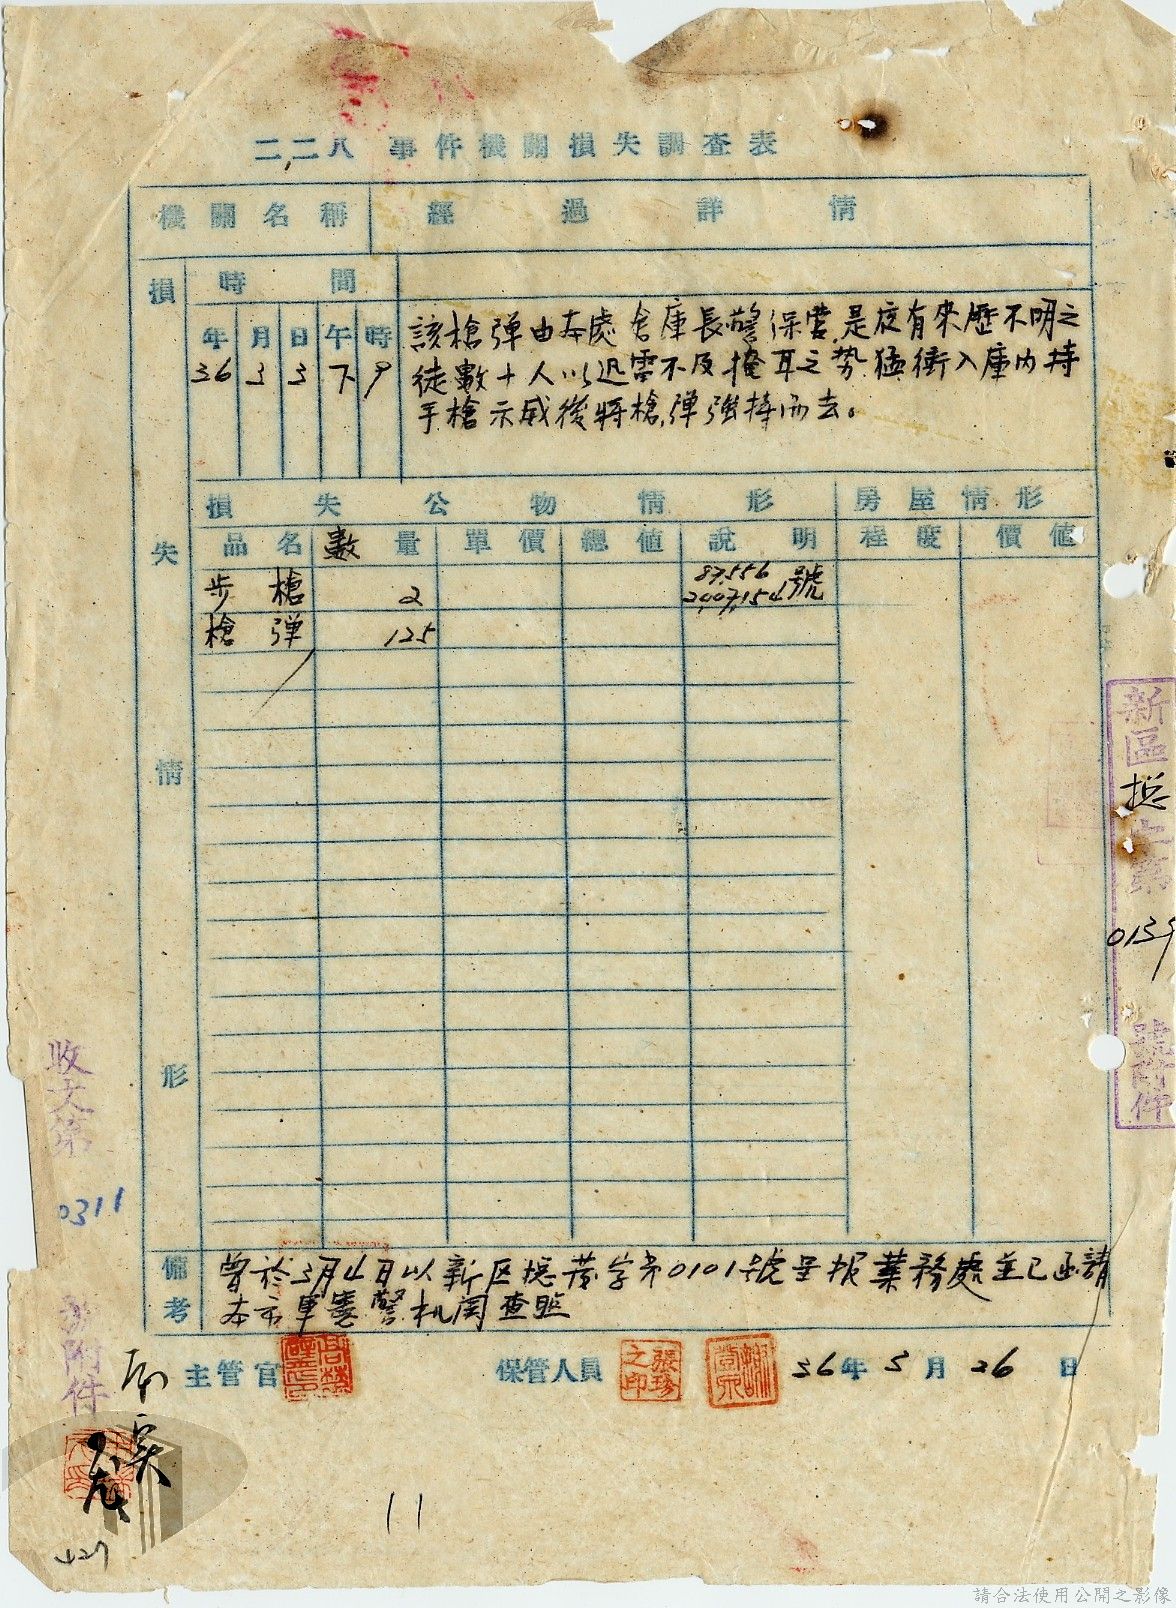 二、二八事件機關損失調查表
機關名稱 經過詳情
損失情形
時間
年 月 日 午 時
36 3 3 下 9
該槍彈由本處倉庫長警保管是夜有來歷不明之
徒數十人以迅雷不及掩耳之勢猛衝入庫內持
手槍示威後將槍彈強持而去。
損失公物情形 房屋情形
品名 數量 單價 總值 說明 程度 價值
步槍 2 87,556
2,007,154號
槍彈 125
備考
曾於3月4日以新区總發字第0101號呈报業務處並已函請
本市軍憲警机関查照
主管官 保管人員 張珍之印 36年3月26日
新區總文第
0139
號附件
收文第
0311
號附件
11
427
請合法使用公開之影像